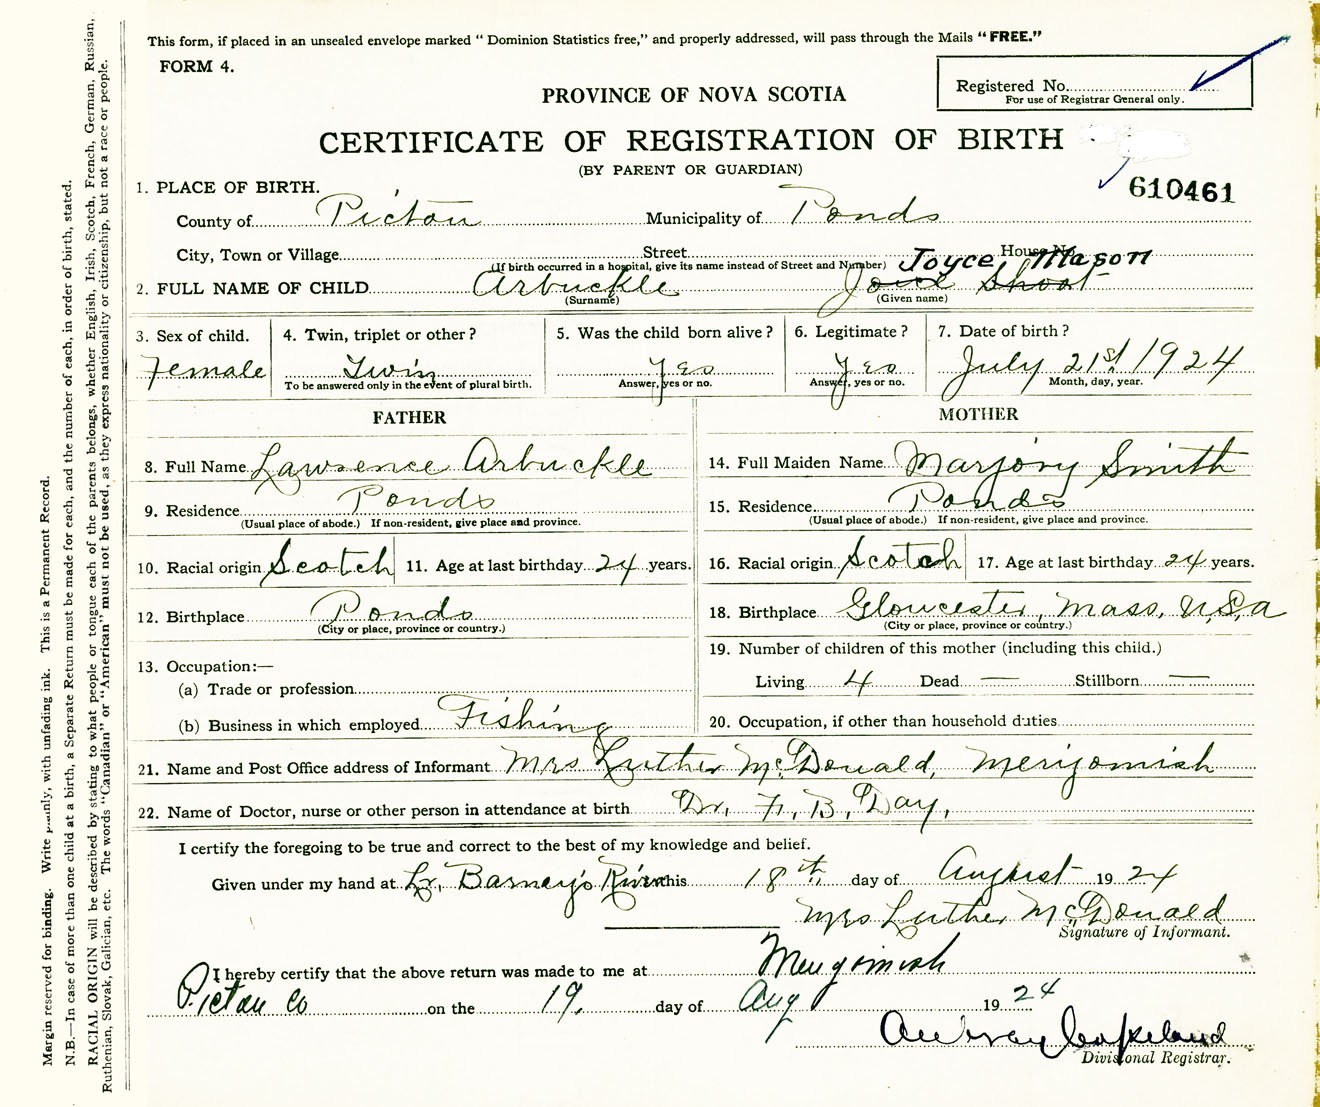 This form, if placed in an unsealed envelope marked "Dominion Statistics free," and properly addressed, will pass through the Mails "FREE."
FORM 4.
Registered No.
For use of Registrar General only.
PROVINCE OF NOVA SCOTIA
CERTIFICATE OF REGISTRATION OF BIRTH
(BY PARENT OR GUARDIAN)
610461
1. PLACE OF BIRTH.
County of Pictou Municipality of Ponds
City, Town or Village Street House No.
(If birth occurred in a hospital, give its name instead of Street and Number) Joyce Mason
2. FULL NAME OF CHILD Arbuckle Joice Shoot
(Surname) (Given name)
3. Sex of child. 4. Twin, triplet or other? 5. Was the child born alive? 6. Legitimate? 7. Date of birth?
Female Twin Yes Yes July 21st 1924
To be answered only in the event of plural birth. Answer, yes or no. Answer, yes or no. Month, day, year.
FATHER MOTHER
8. Full Name Lawrence Arbuckle 14. Full Maiden Name Marjory Smith
9. Residence Ponds 15. Residence Ponds
(Usual place of abode.) If non-resident, give place and province. (Usual place of abode.) If non-resident, give place and province.
10. Racial origin Scotch 11. Age at last birthday 24 years. 16. Racial origin Scotch 17. Age at last birthday 24 years.
12. Birthplace Ponds 18. Birthplace Gloucester, Mass, U,S,a
(City or place, province or country.) (City or place, province or country.)
13. Occupation:— 19. Number of children of this mother (including this child.)
(a) Trade or profession Living 4 Dead — Stillborn —
(b) Business in which employed Fishing 20. Occupation, if other than household duties
21. Name and Post Office address of Informant Mrs Luther McDonald, Merigomish
22. Name of Doctor, nurse or other person in attendance at birth Dr. F. B. Day,
I certify the foregoing to be true and correct to the best of my knowledge and belief.
Given under my hand at Lr, Barney's River this 18th day of August 1924
Mrs Luther McDonald
Signature of Informant.
I hereby certify that the above return was made to me at Merigomish
Pictou Co on the 19. day of Aug 1924
Aubrey Copeland
Divisional Registrar.
Margin reserved for binding. Write plainly, with unfading ink. This is a Permanent Record.
N.B.—In case of more than one child at a birth, a Separate Return must be made for each, and the number of each, in order of birth, stated.
RACIAL ORIGIN will be described by stating to what people or tongue each of the parents belongs, whether English, Irish, Scotch, French, German, Russian,
Ruthenian, Slovak, Galician, etc. The words "Canadian" or "American" must not be used, as they express nationality or citizenship, but not a race or people.